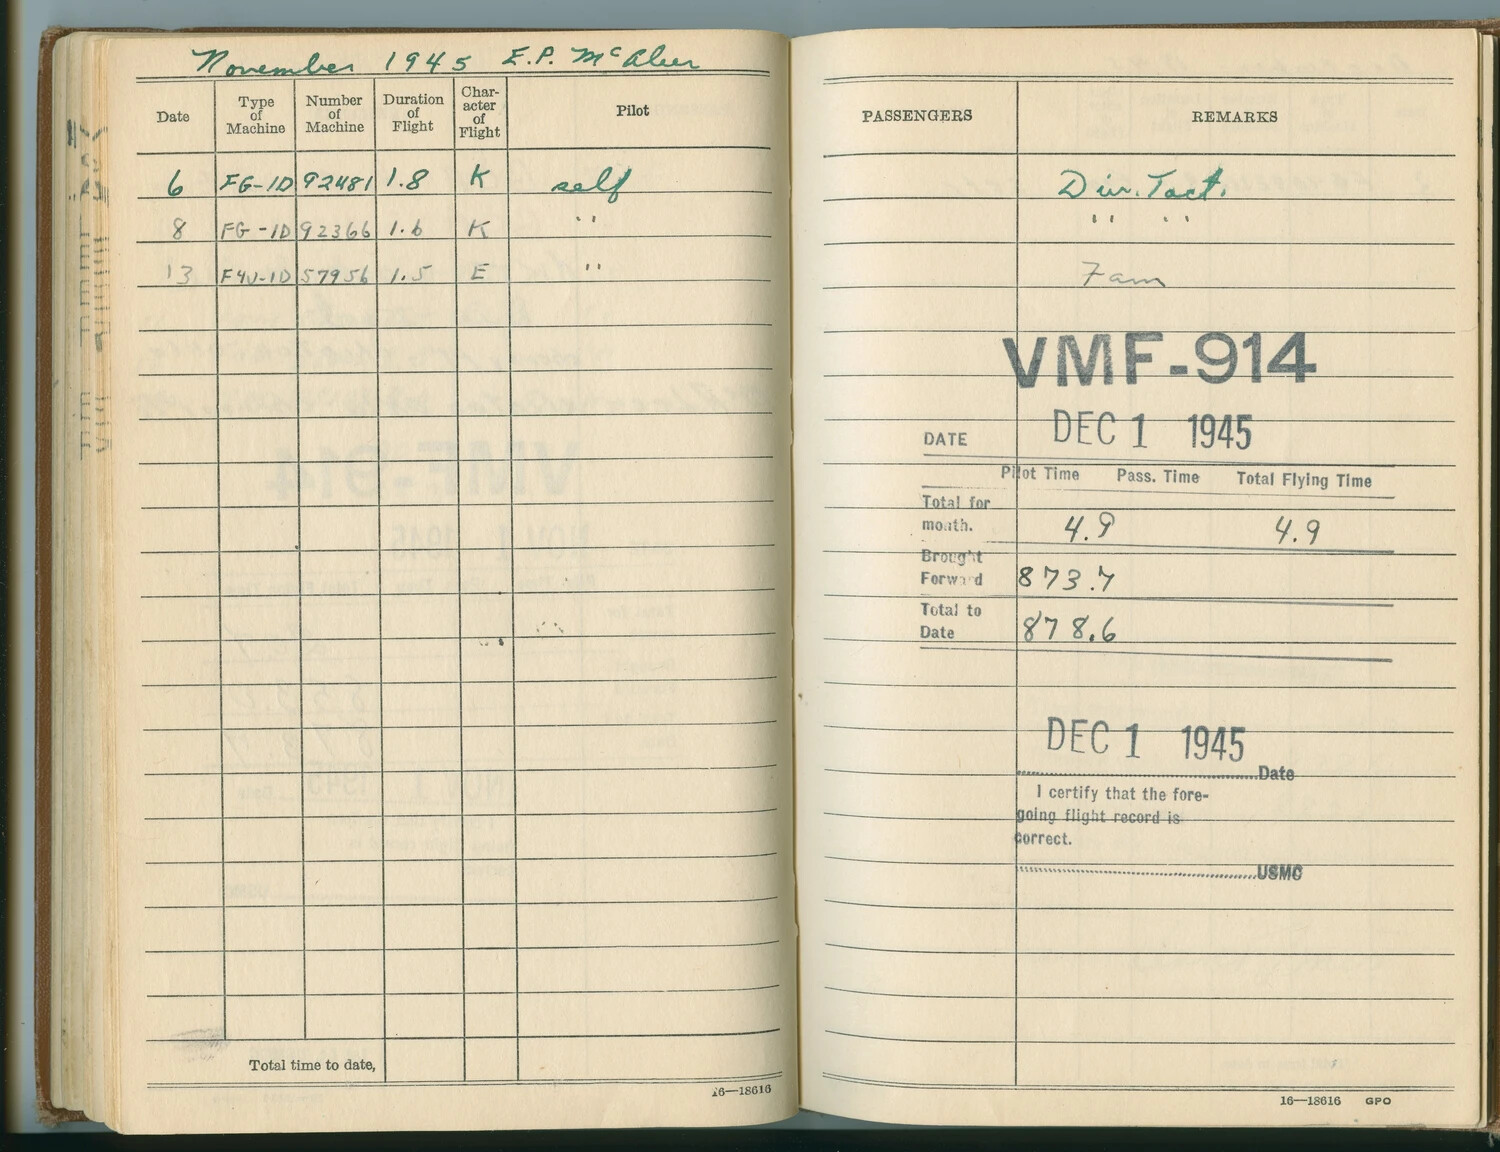 November 1945 E.P. McAleer
Date Type of Machine Number of Machine Duration of Flight Char- acter of Flight Pilot
6 FG-1D 92481 1.8 K self
8 FG-1D 92366 1.6 K " "
13 F4U-1D 57956 1.5 E "
Total time to date,
16—18616
PASSENGERS REMARKS
Div. Tact.
" " " "
Fam
VMF-914
DATE DEC 1 1945
Pilot Time Pass. Time Total Flying Time
Total for
month. 4.9 4.9
Brought
Forward 873.7
Total to
Date 878.6
DEC 1 1945
Date
I certify that the fore-
going flight record is
correct.
USMC
16—18616 GPO